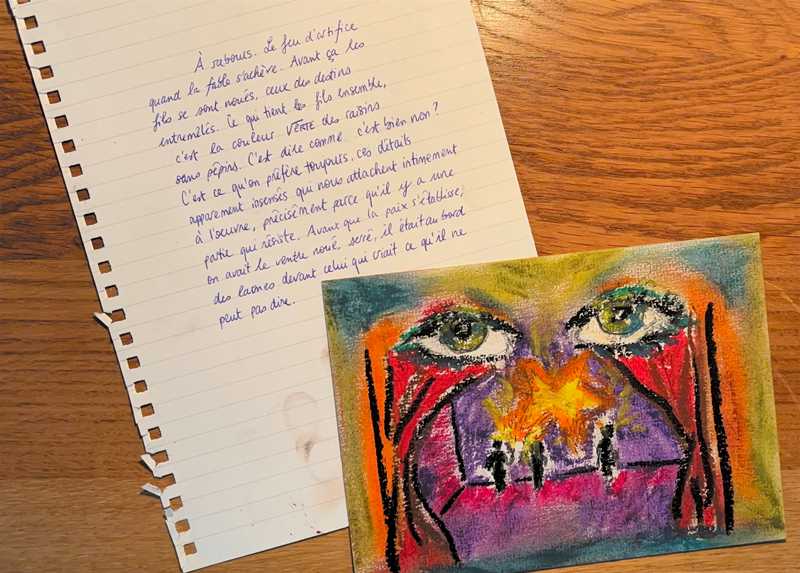 À rebours. Le feu d'artifice
quand la fable s'achève. Avant ça les
fils se sont noués, ceux des destins
entremêlés. Ce qui tient les fils ensemble,
c'est la couleur VERTE des raisins
sans pépins. C'est dire comme. c'est bien non ?
C'est ce qu'on préfère toujours. ces détails
apparement insensés qui nous attachent intimement
à l'œuvre, précisément parce qu'il y a une
partie qui résiste. Avant que la paix s'établisse,
on avait le ventre noué, serré, il était au bord
des larmes devant celui qui criait ce qu'il ne
peut pas dire.